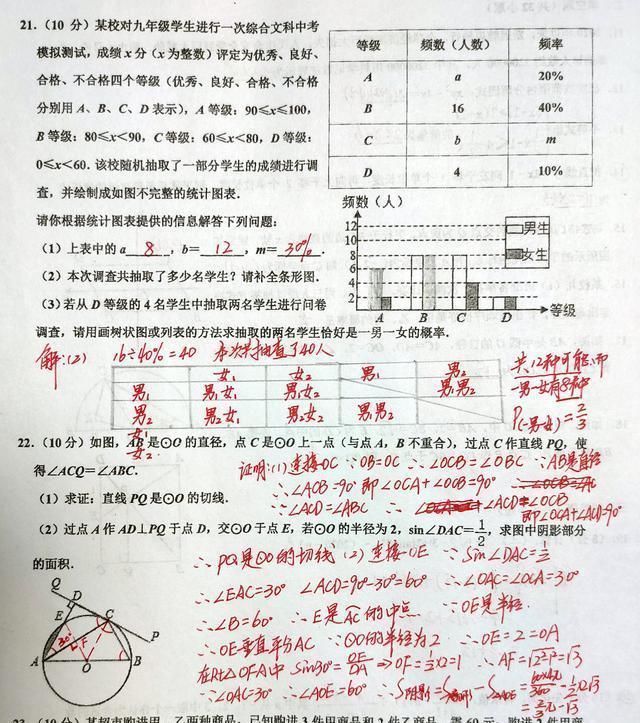 21.(10 分)某校对九年级学生进行一次综合文科中考
模拟测试,成绩 x 分(x 为整数)评定为优秀、良好、
合格、不合格四个等级(优秀、良好、合格、不合格
分别用 A、B、C、D 表示),A 等级:90≤x≤100,
B 等级:80≤x<90,C 等级:60≤x<80,D 等级:
0≤x<60.该校随机抽取了一部分学生的成绩进行调
查,并绘制成如图不完整的统计图表.
等级 频数(人数) 频率
A a 20%
B 16 40%
C b m
D 4 10%
请你根据统计图表提供的信息解答下列问题:
(1)上表中的 a 8 ,b= 12 ,m= 30% .
(2)本次调查共抽取了多少名学生?请补全条形图.
(3)若从 D 等级的 4 名学生中抽取两名学生进行问卷
调查,请用画树状图或列表的方法求抽取的两名学生恰好是一男一女的概率.
频数(人)
12
10
8
6
4
2
A B C D 等级
男生
女生
解:(2) 16÷40%=40 本次共抽查了40人
女₁ 女₂ 男₁ 男₂
男₁ 男₁女₁ 男₁女₂ 男₁男₂
男₂ 男₂女₁ 男₂女₂ 男₁男₂
女₁
女₂
共12种可能,而
一男一女有8种
P(一男一女)=2/3
22.(10 分)如图,AB 是⊙O 的直径,点 C 是⊙O 上一点(与点 A,B 不重合),过点 C 作直线 PQ,使
得∠ACQ=∠ABC.
(1)求证:直线 PQ 是⊙O 的切线.
(2)过点 A 作 AD⊥PQ 于点 D,交⊙O 于点 E,若⊙O 的半径为 2,sin∠DAC=1/2,求图中阴影部分
的面积.
证明:(1)连接OC ∵OB=OC ∴∠OCB=∠OBC ∵AB是直径
∴∠ACB=90° 即∠OCA+∠OCB=90°
∵∠ACD=∠ABC ∴∠ACD=∠OCB
即∠OCA+∠ACD=90°
∴PQ是⊙O的切线 (2)连接OE ∵Sin∠DAC=1/2
∴∠EAC=30° ∠ACD=90°-30°=60° ∴∠OAC=∠OCA=30°
∴∠B=60° ∴E是AC的中点 ∵OE是半径
∴OE垂直平分AC ∵⊙O的半径为2 ∴OE=2=OA
在Rt△OFA中 Sin30°=OF/OA ⇒OF=1/2×2=1 ∴AF=√2²-1²=√3
∵∠OAC=30° ∴∠AOE=60° ∴S阴影=S扇形-S△AOE=60×4π/360-1/2×2√3
=2/3π-√3
Q
D
E
C
P
30°
F
A
O
B